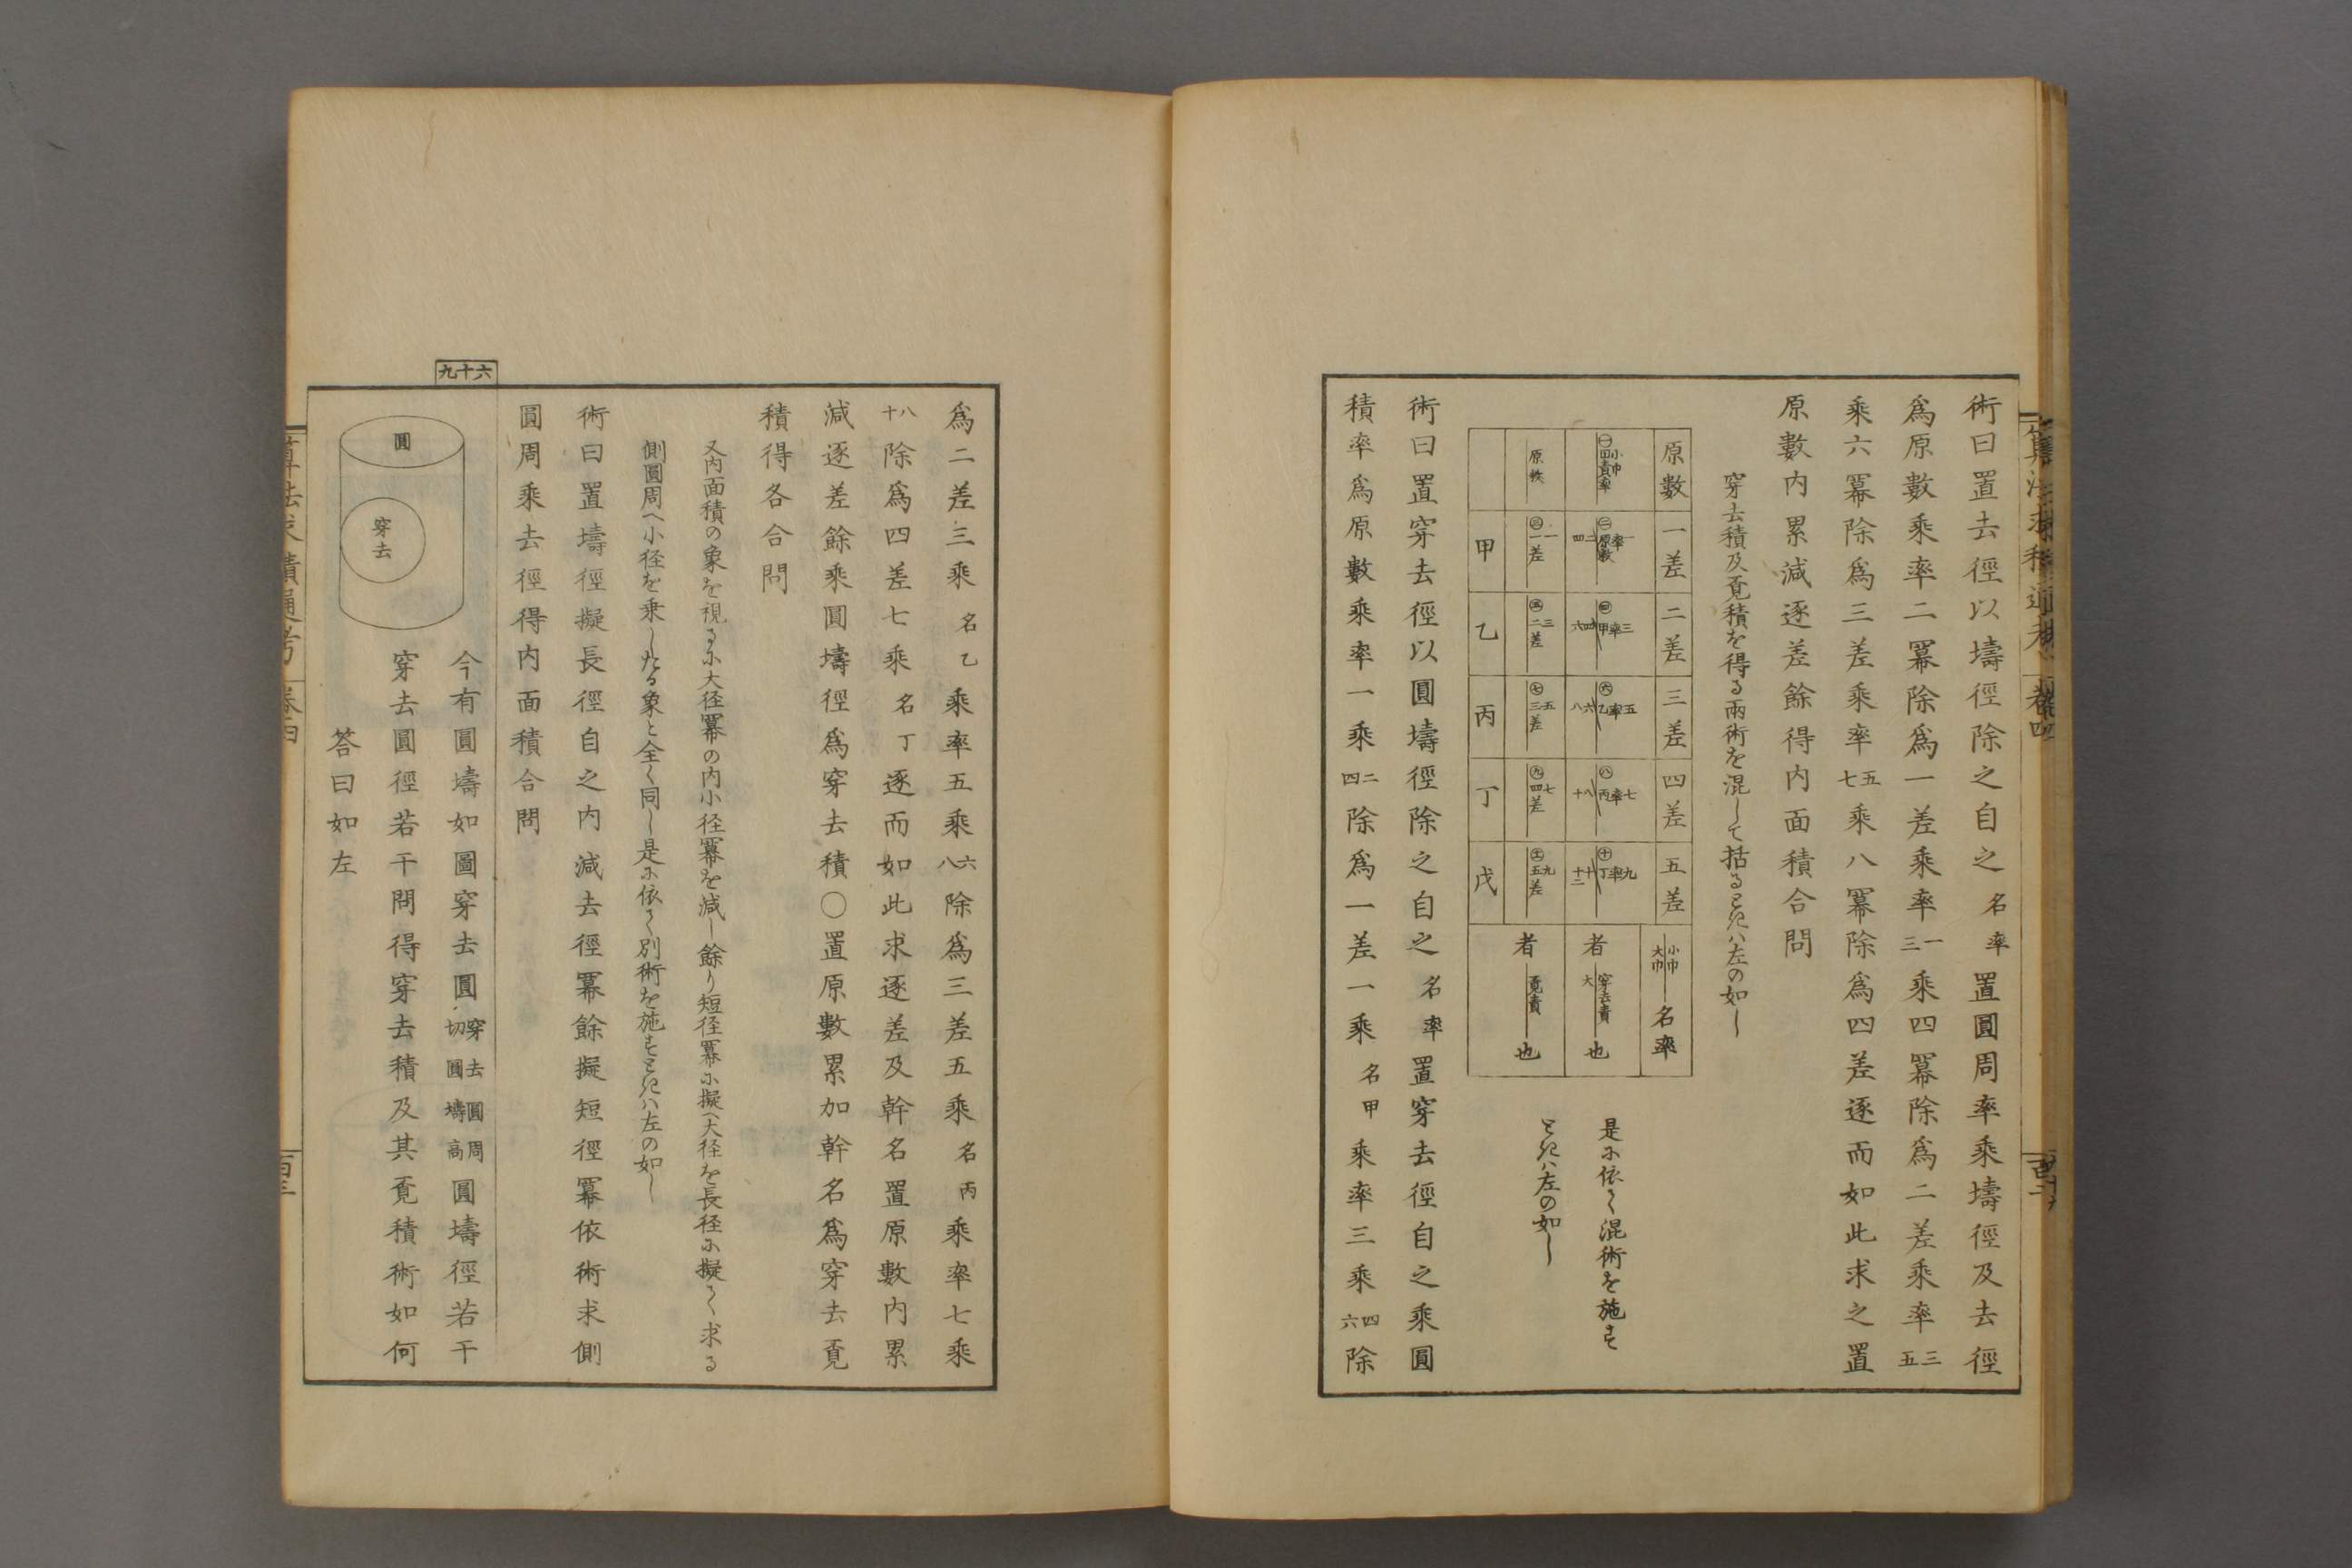 術曰置去徑以壔徑除之自之名率置圓周率乘壔徑及去徑
爲原數乘率二冪除爲一差乘率一三乘四冪除爲二差乘率三五
乘六冪除爲三差乘率五七乘八冪除爲四差逐而如此求之置
原數内累減逐差餘得内面積合問
穿去積及覔積を得る兩術を混して括るときハ左の如し
原數
一差
二差
三差
四差
五差
小巾
大巾
名率
甲
乙
丙
丁
戊
者
穿去責
大
也
者
覔責
也
是に依て混術を施す
ときハ左の如し
術曰置穿去徑以圓壔徑除之自之名率置穿去徑自之乘圓
積率爲原數乘率一乘二四除爲一差一乘名甲乘率三乘四六除
爲二差三乘名乙乘率五乘六八除爲三差五乘名丙乘率七乘
八十除爲四差七乘名丁逐而如此求逐差及幹名置原數内累
減逐差餘乘圓壔徑爲穿去積〇置原數累加幹名爲穿去覔
積得各合問
又内面積の象を視るに大径冪の内小径冪を減し餘り短径冪に擬へ大径を長径に擬て求る
側圓周へ小径を乗したる象と全く同し是に依て別術を施すときハ左の如し
術曰置壔徑擬長徑自之内減去徑冪餘擬短徑冪依術求側
圓周乘去徑得内面積合問
九十六
圓
穿去
今有圓壔如圖穿去圓穿去圓周切圓壔高圓壔徑若干
穿去圓徑若干問得穿去積及其覔積術如何
答曰如左
算法求積通考
卷四